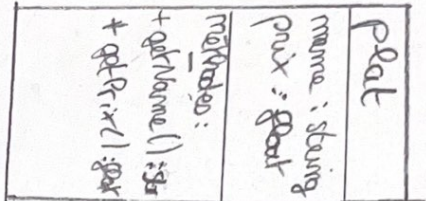 plat
name : string
prix : float
méthodes :
+ getName() : str
+ getPrix() : float